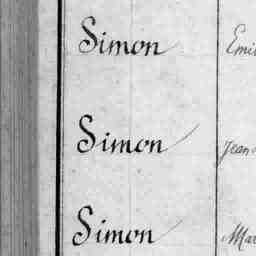 Simon Emi
Simon Jean
Simon Mar